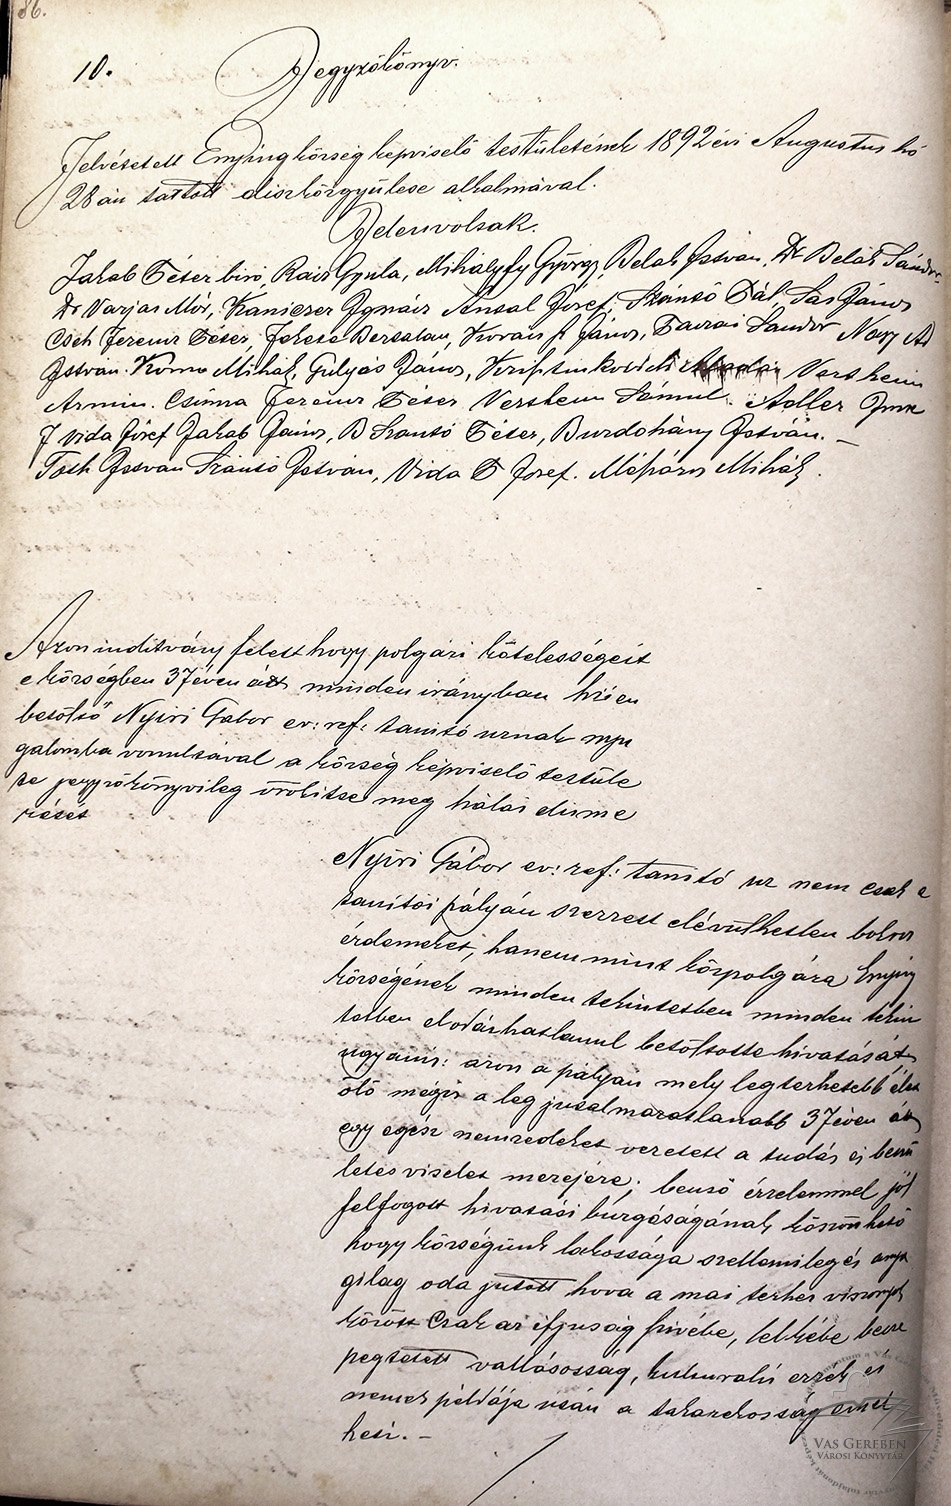 86.
10.
Jegyzőkönyv.
Felvétetett Enying község képviselő testületének 1892 évi Augustus hó
28 án tartott diszközgyülése alkalmával.
Jelenvoltak.
Jakab Péter biró, Rácz Gyula, Mihályfy György, Belák István, Dr Belák Sándor
Dr Varjas Mór, Kaniczer Ignácz Antal József, Szántó Pál, Sás János
Cseh Ferencz Péter, Fekete Bertalan, János, Sandor Nagy
István. Mihál, Gulyás János, Vertheim
Armin. Csima Ferencz Péter Vertheim Sámuel. Adler
J Vida József Jakab János, B Szántó Péter, Burdohány István. –
Tóth István Szántó István, Vida P Josef. Mészáros Mihál.
Azon inditvány felett hogy polgári kötelességeit
e községben 37 éven átt minden irányban híven
betöltő Nyiri Gabor ev: ref: tanitó urnak nyu
galomba vonultával a község képviselő testüle
te jegyzőkönyvileg örökitse meg hálás elisme
rését
Nyíri Gábor ev: ref: tanító ur nem csak a
tanitói pályán szerzett elévülhetlen bokros
érdemeket, hanem mint közpolgára Enying
községének minden tekintetben minden tekin
tetben betöltötte hivatását
ugyanis: azon a pályán mely legterhesebb
ölő mégis a leg jutalmazatlanabb 37 éven át
egy egész nemzedéket vezetett a tudás és becsü
letes viselet mezejére; benső érzelemmel jól
felfogott hivatási buzgóságának köszönhető
hogy községünk lakossága szellemileg és anya
gilag oda jutott hova a mai terhes viszonyok
között Csak az ifjuság szivébe, lelkébe becse
pegtetett vallásosság, kulturalis érzék és
nemes példája után a takarékosság
heti. –
VAS GEREBEN
VÁROSI KÖNYVTÁR